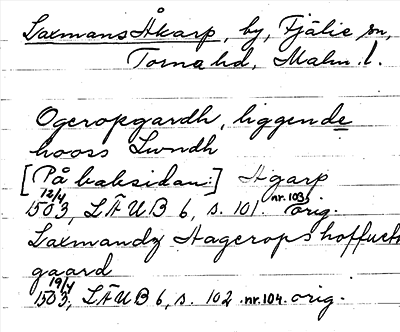 Laxmans Åkarp, by, Fjälie sn,
Torna hd, Malm. l.
Ogeropgardh, liggende
hooss Lundh
[På baksidan:] Agarp
12/4
1503, LÄUB 6, s. 101. nr. 103, orig.
Laxmandz Aagerops hoffueth
gaard
19/4
1503, LÄUB 6, s. 102. nr. 104. orig.